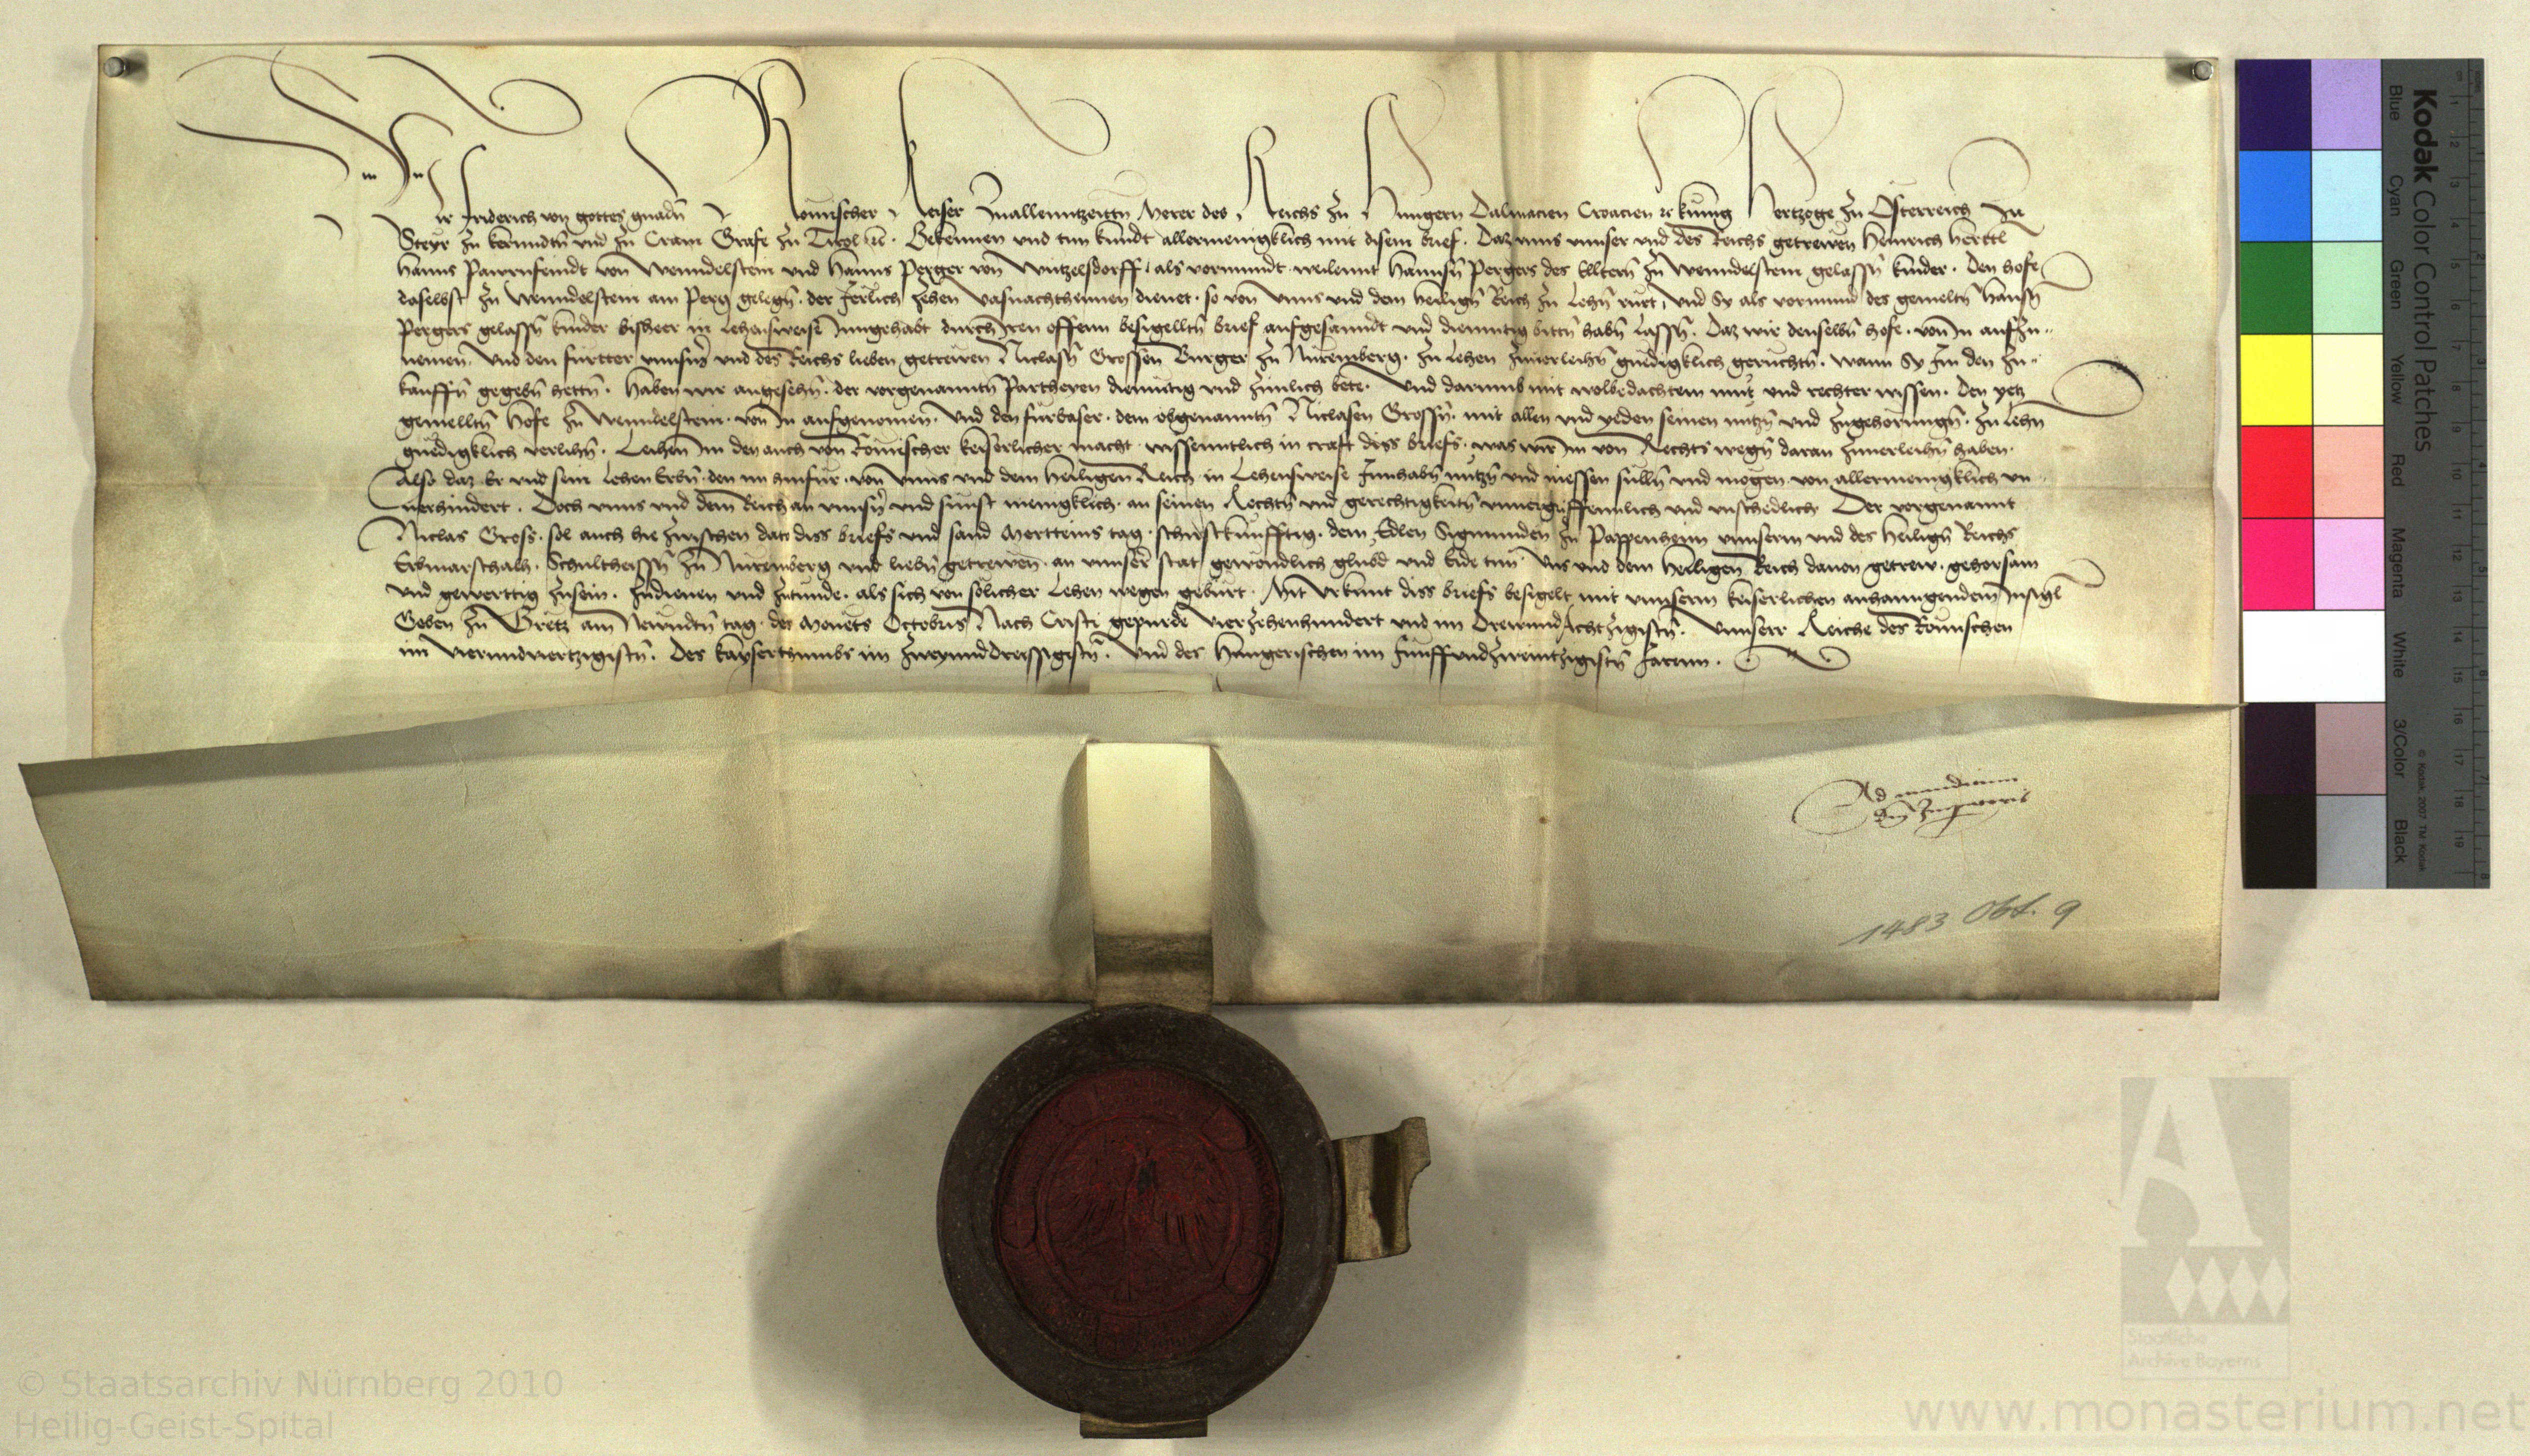 Wir Friderich von gottes gnadn̄ Römischer Keiser Zuallenntzeittn̄ Merer des Reichs zu Hungern Dalmacien Croacien ⁊c kunig Hertzoge zu Österreich zu
Steyr zu kernndtn̄ vnd zu Crain Grafe zu Tirol ⁊c. Bekennen vnd tun kundt allermenigklich mit disem brief. Daz vnns vnnser vnd des Reichs getrewen Heinrich Herttl
Hanns Pawrnfeindt von Wenndelstein vnd Hanns Perger von Wintzelsdorff als vormundt weilennt Hannsn̄ Pergers des Elltern zu Wenndelstein gelassn̄ kinder. Den hofe
daselbst zu Wenndelstein am Perg gelegn̄. der Jerlich zehen vasnachthennen dienet. so von vnns vnd dem heilign̄ Reich zu Lehn̄ rürt, vnd Sy als vormund des gemeltn̄ Hansn̄
Pergers gelassn̄ kinder bisheer in Lehensweise Inngehabt durch Iren offenn besigelltn̄ brief aufgesanndt vnd diemutig bittn̄ habn̄ Lassn̄. Daz wir denselbn̄ hofe. von In aufzu-
nemen. Vnd den furtter vnnsn̄ vnd des Reichs lieben getrewen Niclasn̄ Grossen Burger zu Nüremberg. zu Lehen zuuerleihn̄ gnedigklich geruchtn̄. wann Sy Im den zu-
kauffn̄ gegebn̄ hettn̄. Haben wir angesehn̄. der vorgenanntn̄ Partheyen diemutig vnd zimlich bete. Vnd darumb mit wolbedachtem mut vnd rechter wissen. Den yetz
gemelltn̄ Hofe zu Wenndelstein. von In aufgenomen. Vnd den fürbaser. dem obgenanntn̄ Niclasen Grossn̄. mit allen vnd yeden seinen nutzn̄ vnd zugehorungn̄. zu Lehn̄
gnedigklich verlihn̄. Leihen Im den auch von Römischer keiserlicher macht wissenntlich in craft diss briefs. was wir Im von Rechts wegn̄ daran zuuerleihn̄ haben.
Also daz Er vnd sein Lehen Erbn̄. den nu hinfür. von vnns vnd dem heiligen Reich in Lehensweise Innhabn̄ nutzn̄ vnd niessen sülln̄ vnd mögen. von allermenigklich vn-
uerhindert. Doch vnns vnd dem Reich an vnnsn̄ vnd sunst menigklich. an seinen Rechtn̄ vnd gerechtigkeitn̄ vnuergriffennlich vnd vnschedlich. Der vorgenannt
Niclas Gross. sol auch hie zwischen dato diss briefs vnd sand Merttens tag. schiristkünfftig. dem Edlen Sigmunden zu Pappenheim vnnserm vnd des heilign̄ Reichs
Erbmarschalh. Schultheissn̄ zu Nüremberg vnd liebn̄ getrewen. an vnnser stat gewondlich glubd vnd Eide tun. Vns vnd dem heiligen Reich dauon getrew. gehorsam
vnd gewerttig zusein. zudienen vnd zutunde. als sich von solicher Lehen wegen gebürt. Mit vrkunt diss briefs besigelt mit vnnserm keiserlichen anhanngendem Insigl
Geben zu Gretz am Newndtn̄ tag. des Monets Octobris Nach Cristi gepurde Vierzehenhundert vnd im Drewundachtzigistn̄. Vnnserr Reiche des Römischen
im Vierundviertzigistn̄. Des kayserthumbs im zweyunddreissigistn̄. Vnd des Hungerischen im funffundzweintzigistn̄ Jarenn.
Ad mandatum
1483 Okt. 9
Kodak Color Control Patches
Blue Cyan Green Yellow Red Magenta White 3/Color Black
© Kodak, 2007 TM: Kodak
Staatliche
Archive Bayerns
© Staatsarchiv Nürnberg 2010
Heilig-Geist-Spital
www.monasterium.net